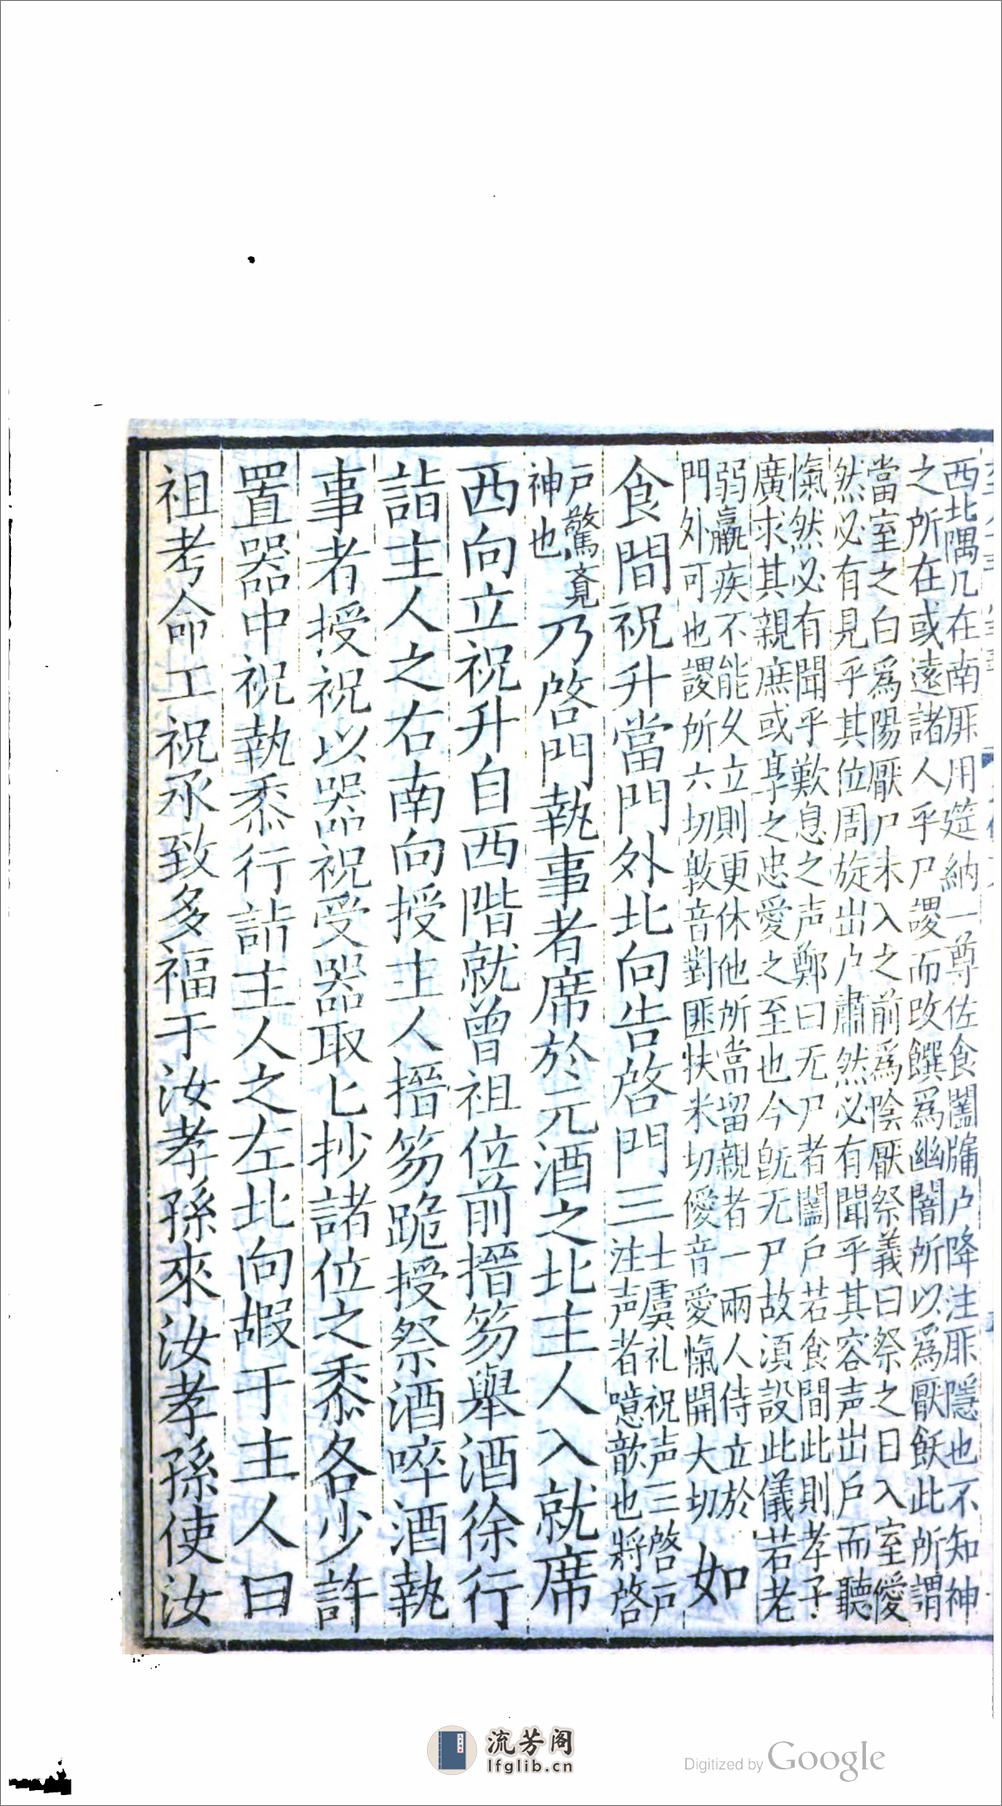 西北隅几在南厞用筵納一尊佐食闔牖户降注厞隱也不知神
之所在或遠諸人乎尸謖而改饌爲幽闇所以爲厭飫此所謂
當室之白爲陽厭尸未入之前爲陰厭祭義曰祭之日入室僾
然必有見乎其位周旋出户肅然必有聞乎其容声出戶而聽
愾然必有聞乎歎息之声鄭曰无尸者闔戶若食間此則孝子
廣求其親庶或享之忠愛之至也今既无尸故須設此儀若老
弱羸疾不能久立則更休他所當留親者一兩人侍立於
門外可也謖所六切敦音對匪扶米切僾音愛愾開大切如
食間祝升當門外北向告啓門三士虞礼祝声三啓戸
注声者噫歆也將啓
戸驚覺
神也乃啓門執事者席於元酒之北主人入就席
西向立祝升自西階就曾祖位前搢笏舉酒徐行
詣主人之右南向授主人搢笏跪授祭酒啐酒執
事者授祝以器祝受器取匕抄諸位之黍各少許
置器中祝執黍行詣主人之左北向嘏于主人曰
祖考命工祝承致多福于汝孝孫來汝孝孫使汝
流芳阁
lfglib.cn
Digitized by Google